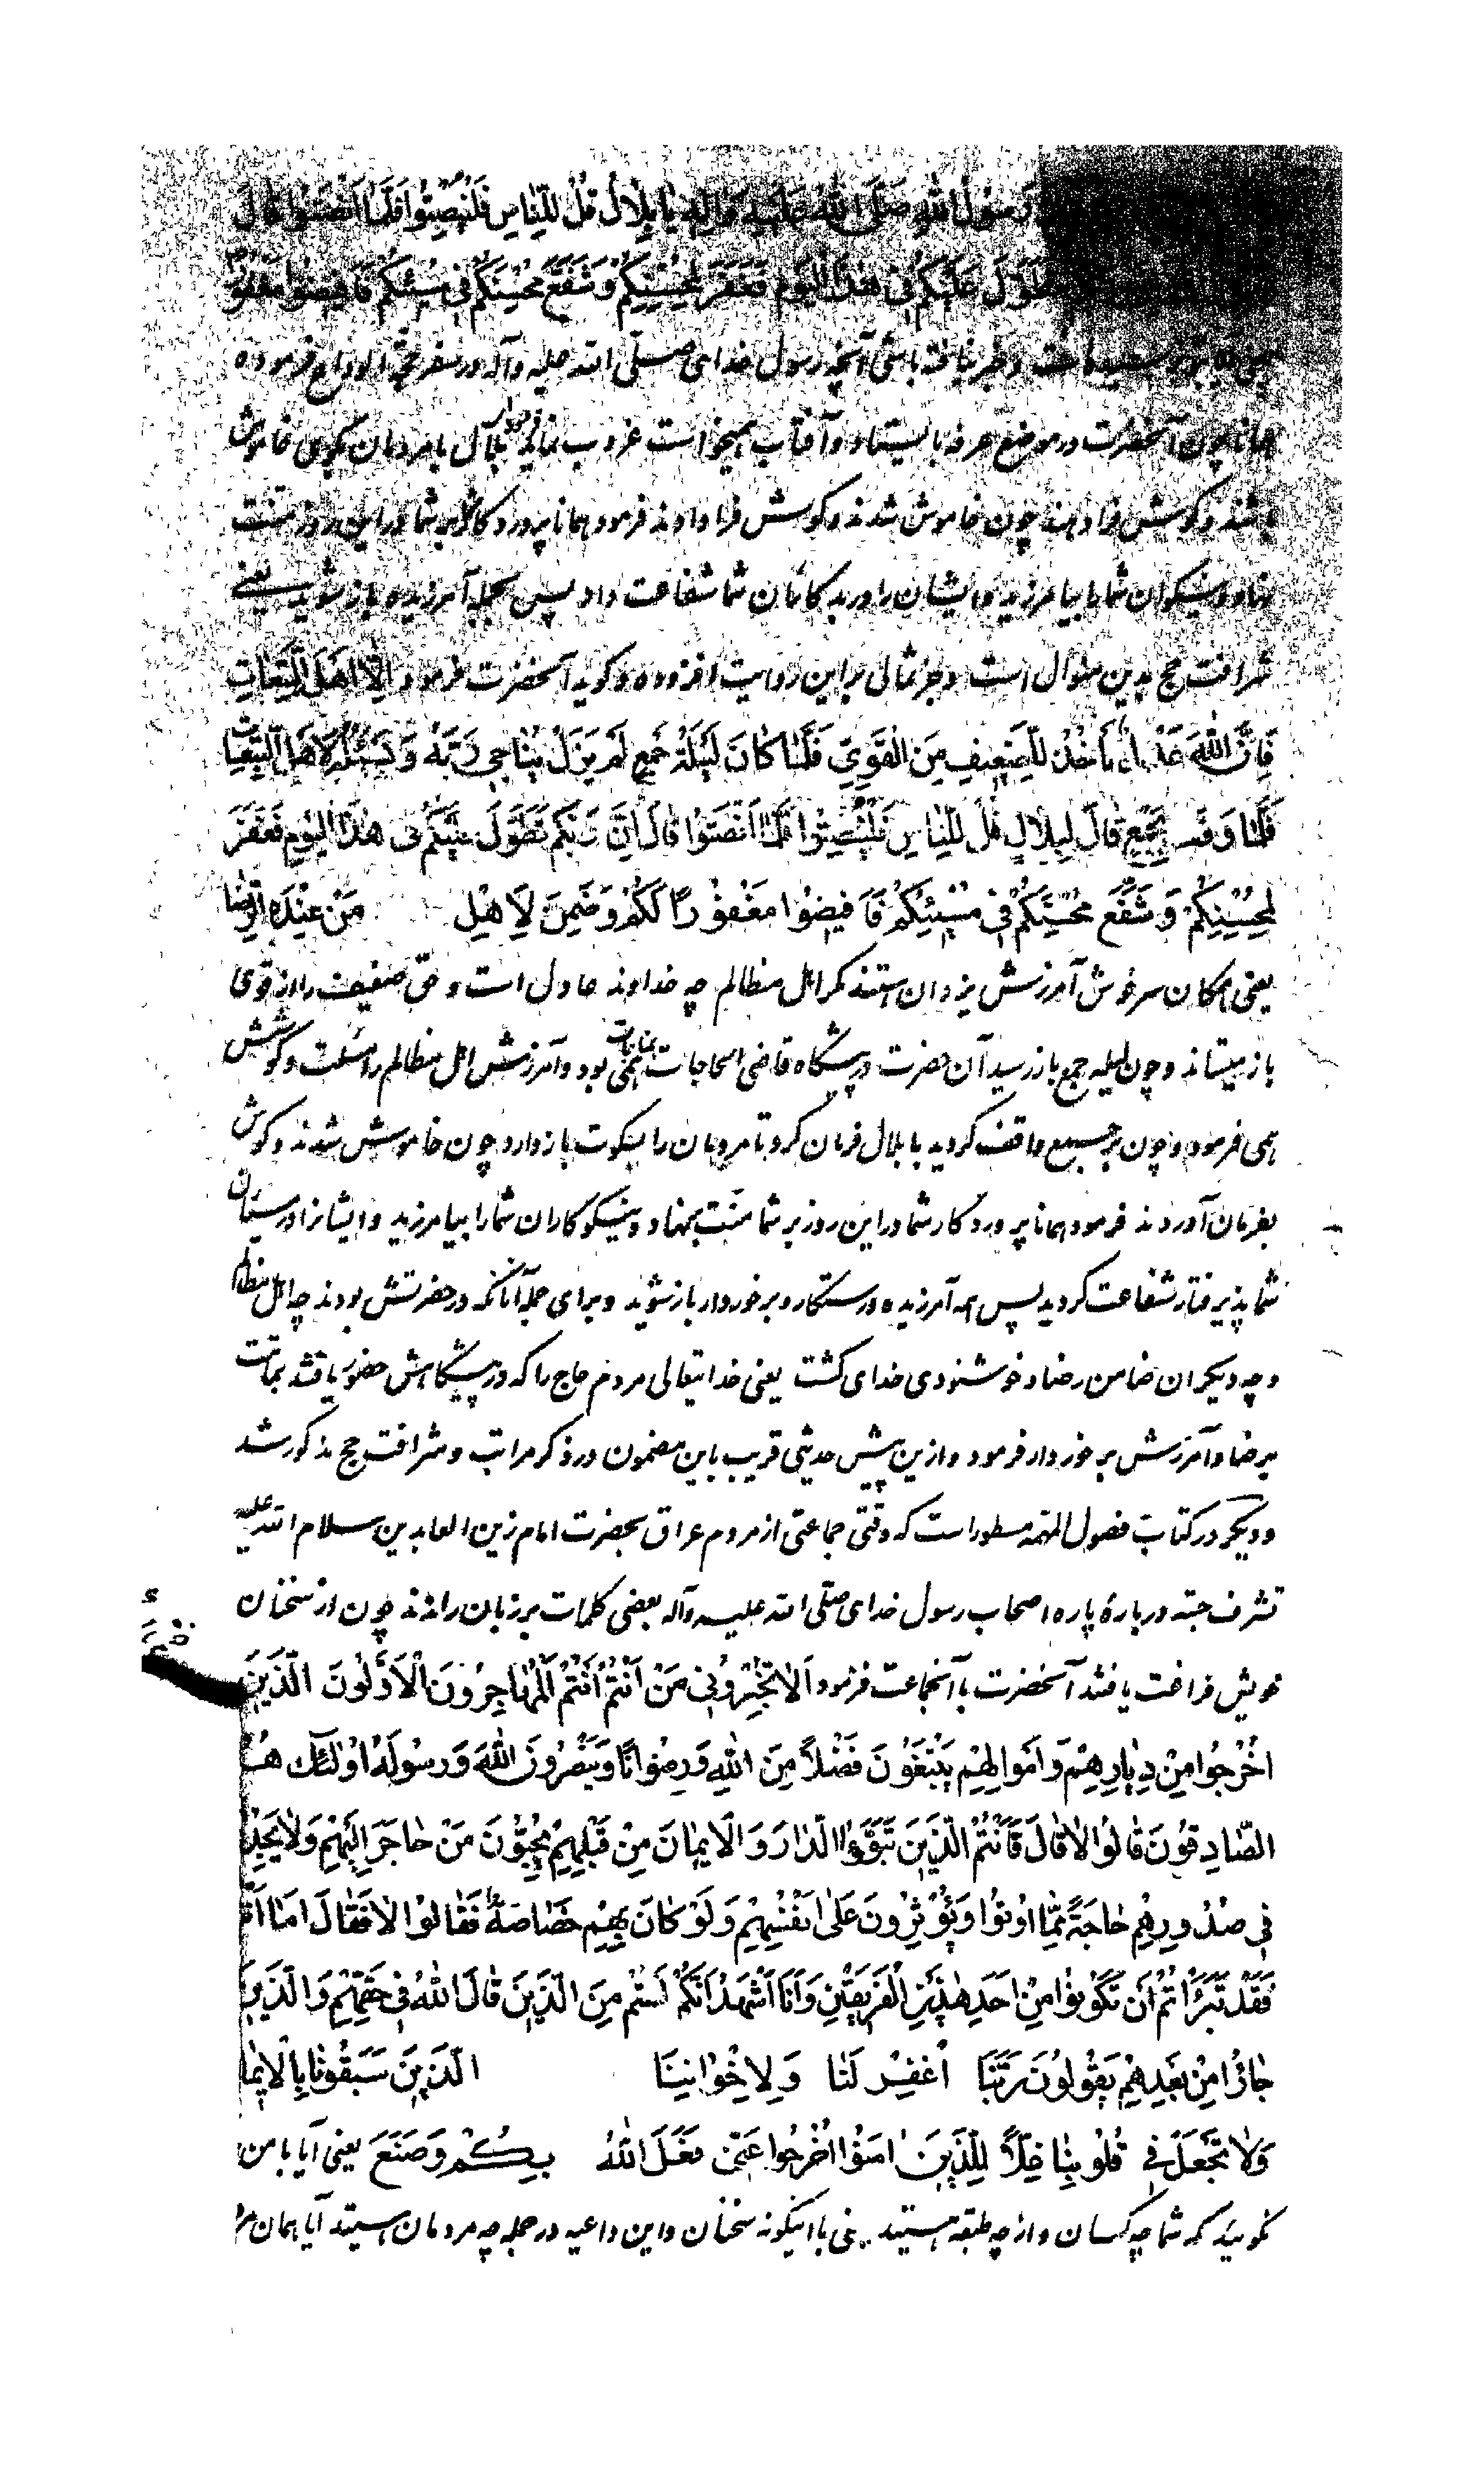 رَسُولُ اللهِ صَلَّى اللهُ عَلَيْهِ وَالِهِ يا بِلالُ قُلْ لِلنّاسِ فَلْيُنْصِتُوا فَلَمّا اَنْصَتُوا قالَ
تَطَوَّلَ عَلَيْكُمْ فى هذَا الْيَوْمِ فَغَفَرَ لِمُحْسِنِكُمْ وَ شَفَّعَ مُحْسِنَكُمْ فى مُسيئِكُمْ فَاَفيضُوا مَغْفُورًا
خبر نیافته باشی آنچه رسول خدای صلّی الله علیه وآله در سفر حجّة الوداع فرموده
همانا چون آنحضرت در موضع عرفه بایستاد و آفتاب همیخواست غروب نماید فرمود ای بلال با مردمان بگوی خاموش
باشند و گوش فرا دهند چون خاموش شدند و گوش فرا دادند فرمود همانا پروردگار بر شما در این روز منّت
نهاد و نیکوان شما را بیامرزید و ایشان را در بدکاران شما شفاعت داد پس بجمله آمرزیده باز شوید یعنی
شرافت حج بدین منوال است و جز ثمالی بر این روایت افزوده و گوید آنحضرت فرمود اِلّا اَهْلَ التَّبِعاتِ
فَاِنَّ اللهَ عَدْلٌ یَأْخُذُ لِلضَّعيفِ مِنَ الْقَوِىِّ فَلَمّا كانَ لَيْلَةُ جَمْعٍ لَمْ يَزَلْ يُناجى رَبَّهُ وَ يَسْئَلُهُ لِاَهْلِ التَّبِعاتِ
فَلَمّا وَقَفَ بِجَمْعٍ قالَ لِبِلالٍ قُلْ لِلنّاسِ فَلْيُنْصِتُوا فَلَمّا اَنْصَتُوا قالَ اِنَّ رَبَّكُمْ تَطَوَّلَ عَلَيْكُمْ فى هذَا الْيَوْمِ فَغَفَرَ
لِمُحْسِنِكُمْ وَ شَفَّعَ مُحْسِنَكُمْ فى مُسيئِكُمْ فَاَفيضُوا مَغْفُورًا لَكُمْ وَ ضَمِنَ لِاَهْلِ مَنْ عِنْدَهُ الرِّضا
یعنی همگان سرخوش آمرزش یزدان هستند مگر اهل مظالم چه خداوند عادل است و حقّ ضعیف را از قوی
باز میستاند و چون لیله جمع باز رسید آن حضرت در پیشگاه قاضی الحاجات بمناجات همی بود و آمرزش اهل مظالم را مسئلت و کوشش
همی فرمود و چون بر جمع واقف گردید با بلال فرمان کرد تا مردمان را بسکوت باز دارد و چون خاموش شدند و گوش
بفرمان آوردند فرمود همانا پروردگار شما در این روز بر شما منّت بنهاد و نیکوکاران شما را بیامرزید و ایشانرا در مسیئان
شما پذیرفتار شفاعت گردید پس همه آمرزیده و رستگار و برخوردار باز شوید و برای جمله آنانکه در حضرتش بودند چه اهل مظالم
و چه دیگران ضامن رضا و خوشنودی خدای گشت یعنی خدایتعالی مردم حاج را که در پیشگاهش حضور یافتند بتمامت
برضا و آمرزش برخوردار فرمود و از این پیش حدیثی قریب باین مضمون در ذکر مراتب و شرافت حج مذکور شد
و دیگر در کتاب فصول المهمّه مسطور است که وقتی جماعتی از مردم عراق بحضرت امام زین العابدین سلام الله علیه
تشرف جسته دربارهٔ پاره اصحاب رسول خدای صلّی الله علیه وآله بعضی کلمات بر زبان راندند چون از سخنان
خویش فراغت یافتند آنحضرت با آنجماعت فرمود اَلا تُخْبِرُونى مَنْ اَنْتُمْ اَنْتُمُ الْمُهاجِرُونَ الْاَوَّلُونَ الَّذينَ
اُخْرِجُوا مِنْ دِيارِهِمْ وَ اَمْوالِهِمْ يَبْتَغُونَ فَضْلاً مِنَ اللهِ وَ رِضْوانًا وَ يَنْصُرُونَ اللهَ وَ رَسُولَهُ اُولئِكَ هُمُ
الصّادِقُونَ قالُوا لا قالَ فَاَنْتُمُ الَّذينَ تَبَوَّؤُا الدّارَ وَ الْايمانَ مِنْ قَبْلِهِمْ يُحِبُّونَ مَنْ هاجَرَ اِلَيْهِمْ وَ لا يَجِدُ
فى صُدُورِهِمْ حاجَةً مِمّا اُوتُوا وَ يُؤْثِرُونَ عَلى اَنْفُسِهِمْ وَ لَوْ كانَ بِهِمْ خَصاصَةٌ فَقالُوا لا فَقالَ اَمّا اَنْتُمْ
فَقَدْ تَبَرَّأْتُمْ اَنْ تَكُونُوا مِنْ اَحَدِ هذَيْنِ الْفَريقَيْنِ وَ اَنَا اَشْهَدُ اَنَّكُمْ لَسْتُمْ مِنَ الَّذينَ قالَ اللهُ فى حَقِّهِمْ وَ الَّذينَ
جاؤُا مِنْ بَعْدِهِمْ يَقُولُونَ رَبَّنَا اغْفِرْ لَنا وَ لِاِخْوانِنَا الَّذينَ سَبَقُونا بِالْايما
وَ لا تَجْعَلْ فى قُلُوبِنا غِلّاً لِلَّذينَ امَنُوا اُخْرُجُوا عَنّى فَعَلَ اللهُ بِكُمْ وَ صَنَعَ یعنی آیا با من
نگوئید که شما چه کسان و از چه طبقه هستید یعنی با اینگونه سخنان و این داعیه در جمله چه مردمان هستید آیا همان